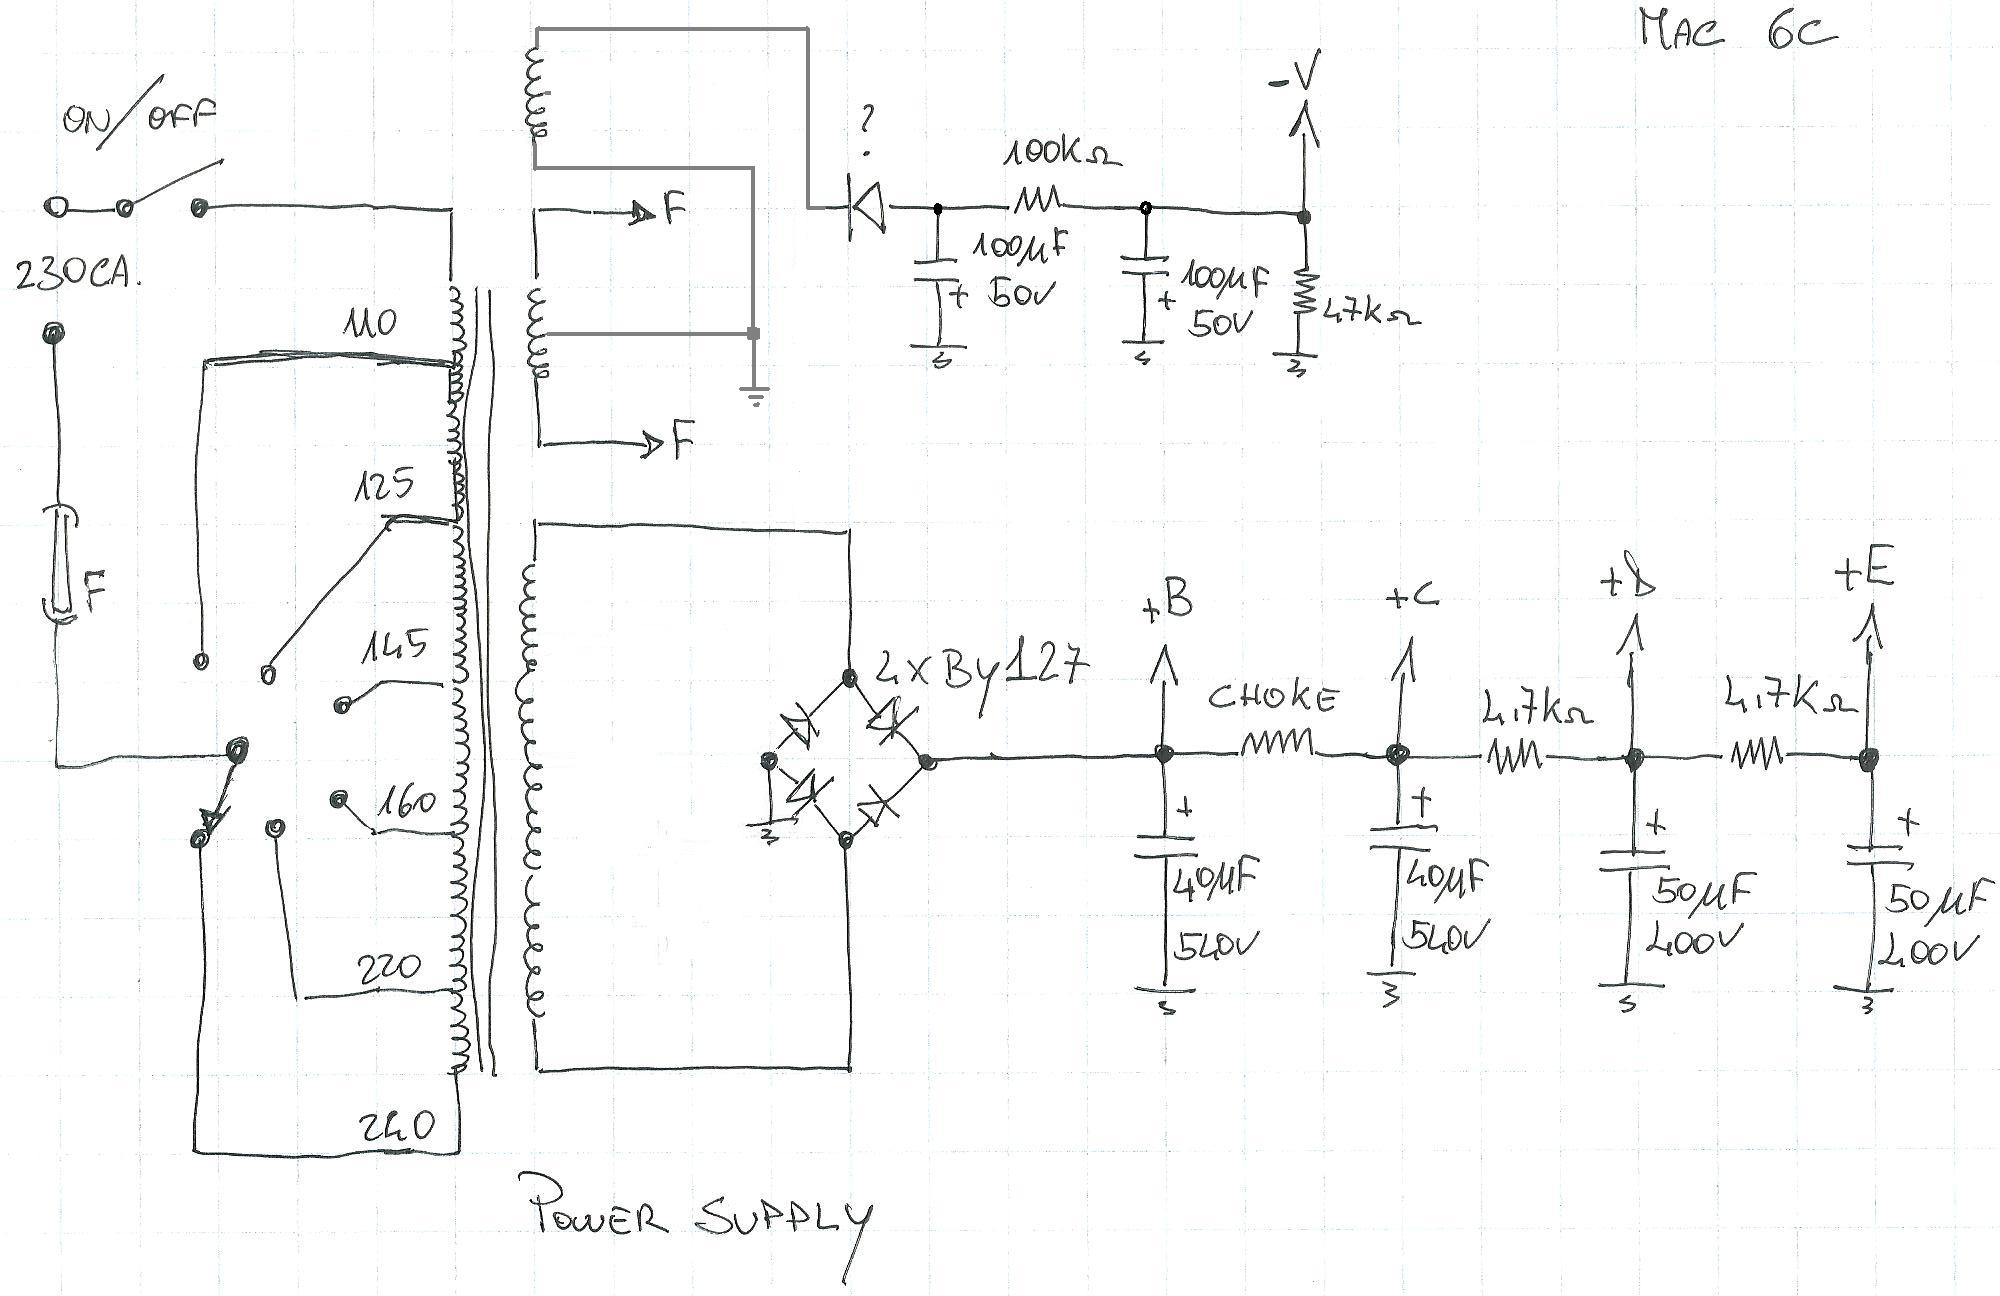 MAC 6C
ON/OFF
230CA.
F
110
125
145
160
220
240
F
F
?
100KΩ
-V
100µF
+ 50V
100µF
+ 50V
47KΩ
4xBy127
+B
CHOKE
+C
4,7KΩ
+D
4,7KΩ
+E
+
40µF
540V
+
40µF
540V
+
50µF
400V
+
50µF
400V
POWER SUPPLY